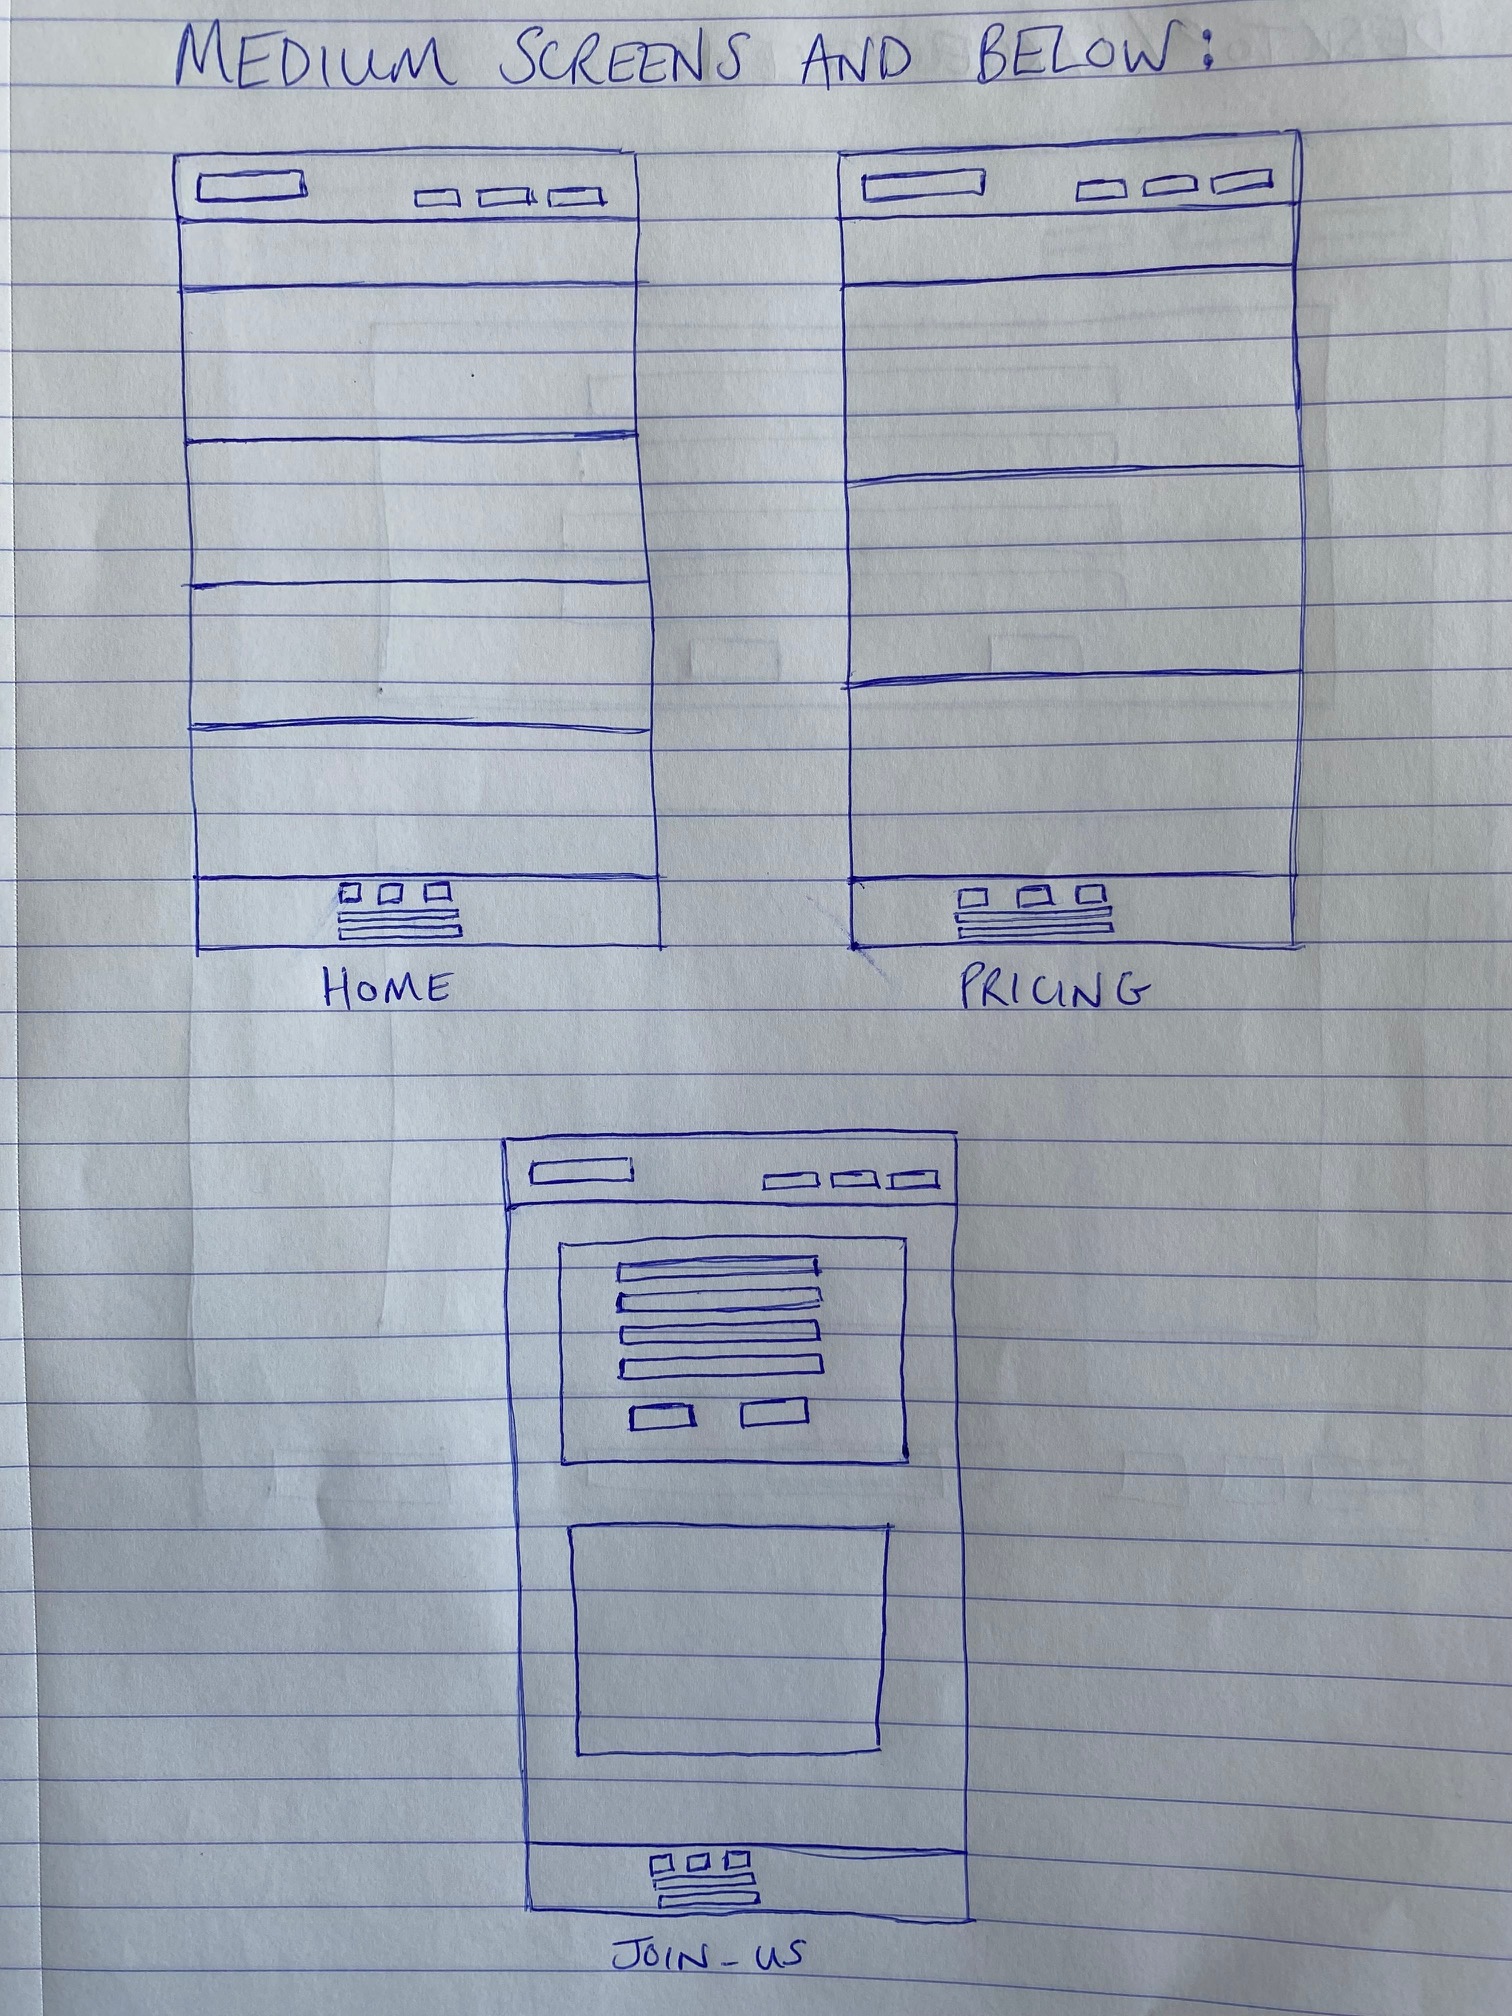 MEDIUM SCREENS AND BELOW:
HOME
PRICING
JOIN-US